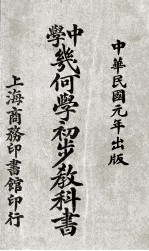 中華民國元年出版
中學
幾何學初步教科書
上海商務印書館印行